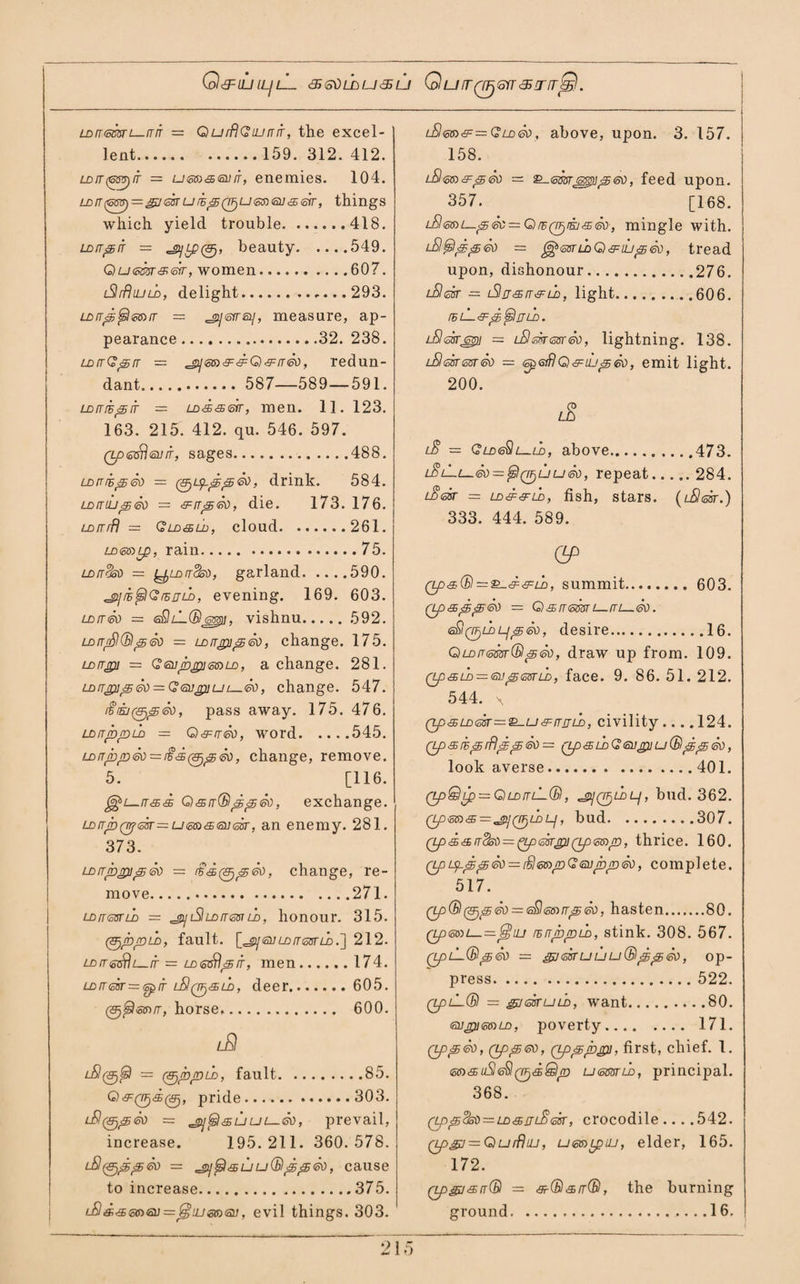 செய்யுட் கலம்பகப் பொருளகராதி.
மாண்டார் = பெரியோர், the excel-
lent...... ......159. 312. 412.
மாணார் = பகைவர், enemies. 104.
மாணா = துன்பந்தருபவைகள், things
which yield trouble........418.
மாதர் = அழகு, beauty. .....549.
பெண்கள், women..........607.
பிரியம், delight............293.
மாத்திரை = அளவு, measure, ap-
pearance..................32. 238.
மாதோ = அசைச்சொல், redun-
dant............ 587—589—591.
மாந்தர் = மக்கள், men. 11. 123.
163. 215. 412. qu. 546. 597.
முனிவர், sages..............488.
மாந்தல் = குடித்தல், drink. 584.
மாய்தல் = சாதல், die. 173. 176.
மாரி = மேகம், cloud. .......261.
மழை, rain..................75.
மாலை = பூமாலை, garland. .....590.
அந்திநேரம், evening. 169. 603.
மால் = விட்டுணு, vishnu..... 592.
மாறிடுதல் = மாறுதல், change. 175.
மாறு = வேற்றுமை, a change. 281.
மாறுதல் = வேறுபடல், change. 547.
நீங்குதல், pass away. 175. 476.
மாற்றம் = சொல், word. .....545.
மாற்றல் = நீக்குதல், change, remove.
5. [116.
இடாக்க கொடுத்தல், exchange.
மாற்றான் = பகைவன், an enemy. 281.
373.
மாற்றுதல் = நீக்குதல், change, re-
move......................271.
மானம் = அபிமானம், honour. 315.
குற்றம், fault. [அவமானம்.] 212.
மானிடர் = மனிதர், men......174.
மான் = ஓர் மிருகம், deer.......605.
குதிரை, horse............... 600.
மி
மிகுதி = குற்றம், fault. .........85.
செருக்கு, pride............303.
மிகுதல் = அதிகப்படல், prevail,
increase. 195. 211. 360. 578.
மிகுத்தல் = அதிகப்படுத்தல், cause
to increase..................375.
மிக்கவை = தீயவை, evil things. 303.
மிசை = மேல், above, upon. 3. 157.
158.
மிசைதல் = உண்ணுதல், feed upon.
357. [168.
மிடைதல் = நெருங்கல், mingle with.
மிதித்தல் = இனம்செய்தல், tread
upon, dishonour............276.
மின் = பிரகாசம், light..........606.
நட்சத்திரம்.
மின்னு = மின்னல், lightning. 138.
மின்னல் = ஒளிசெய்தல், emit light.
200.
மீ
மீ = மேலிடம், above..........473.
மீட்டல் = திருப்பல், repeat..... 284.
மீன் = மச்சம், fish, stars. (மின்.)
333. 444. 589.
மு
முகடு = உச்சம், summit........ 603.
முகத்தல் = கொண்டாடல்.
விரும்புதல், desire............16.
மொண்டுதல், draw up from. 109.
முகம் = வதனம், face. 9. 86. 51. 212.
544.
முகமன் = உபசாரம், civility....124.
முகந்திரித்தல் = முகம்வேறுபடுத்தல்,
look averse................401.
முகிழ் = மொட்டு, அரும்பு, bud. 362.
முகை = அரும்பு, bud...........307.
முக்காலை = மூன்றுமுறை, thrice. 160.
முடித்தல் = நிறைவேற்றல், complete.
517.
முடுகுதல் = விரைதல், hasten.......80.
முடை = தீய நாற்றம், stink. 308. 567.
முட்டுதல் = துன்பப்படுத்தல், op-
press......................522.
முட்டு = துன்பம், want.........80.
வறுமை, poverty.... ....... 171.
முதல், முதல், முதற்று, first, chief. 1.
கையிலிருக்கிற பணம், principal.
368.
முதலை = மகரமீன், crocodile....542.
முது = பெரிய, பழைய, elder, 165.
172.
முதுகாடு = சுடுகாடு, the burning
ground. ....................16.
215